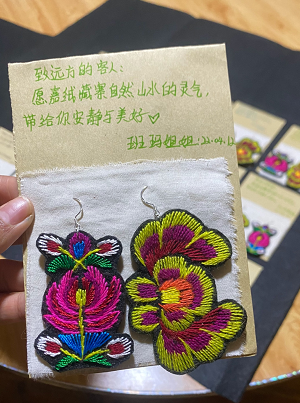 致远方的客人:
愿嘉绒藏寨自然山水的灵气,
带给你安静与美好♡
班玛姐姐·22.04.12